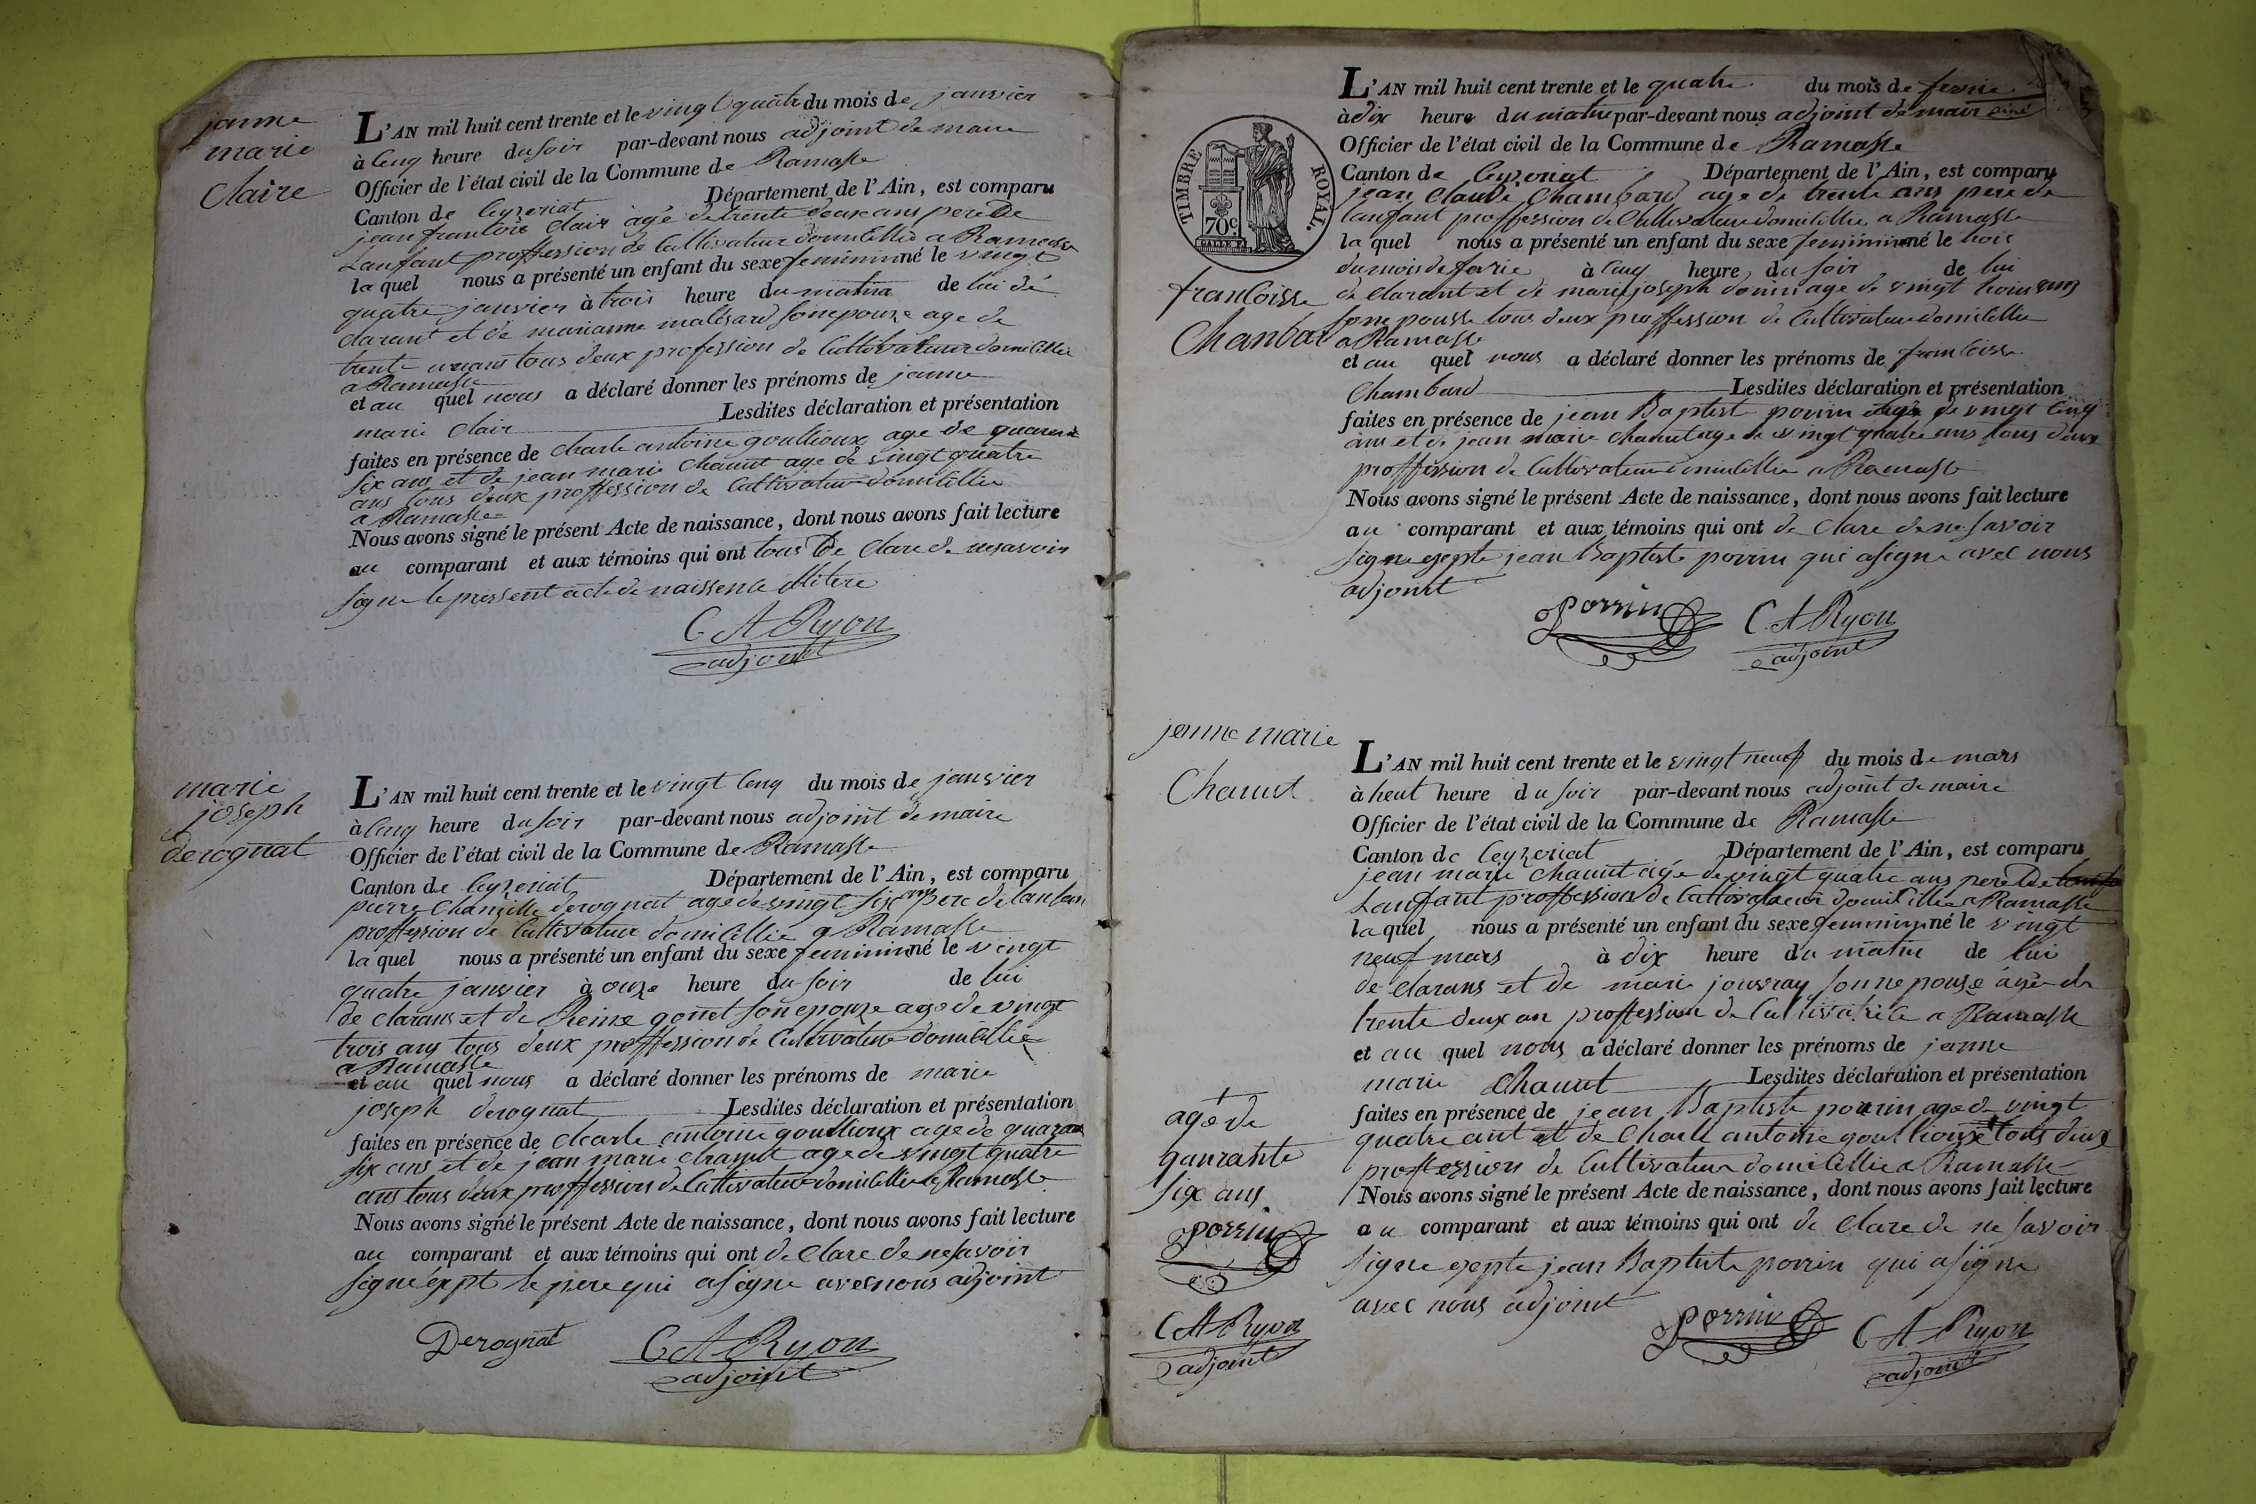 janne
marie
Claire
L'AN mil huit cent trente et le vingt quatr du mois de janvier
à Cinq heure du soir par-devant nous adjoint de maire
Officier de l'état civil de la Commune de Ramasse
Canton de Ceyzeriat Département de l'Ain, est comparu
jean francois Clair agé de trente deux ans pere De
Lanfant proffession de Cultivateur domicillié a Ramasse
la quel nous a présenté un enfant du sexe feminin né le vingt
quatre janvier à trois heure du matin de lui dé
clarant et de marianne malisard son epouze age de
trente un ans tous deux profession de Cultivateur domicillie
a Ramasse
et au quel nous a déclaré donner les prénoms de janne
marie Clair Lesdites déclaration et présentation
faites en présence de Charle antoine goullioux age de quarente
six ans et de jean marie Chanut age de vingt quatre
ans tous deux proffession de Cultivateur domicillie
a Ramasse
Nous avons signé le présent Acte de naissance, dont nous avons fait lecture
au comparant et aux témoins qui ont tous De Clare de ne savoir
signe le pressent acte de naissence
C A Ryon
adjoint
marie
joseph
derognat
L'AN mil huit cent trente et le vingt Cinq du mois de janvier
à Cinq heure du soir par-devant nous adjoint de maire
Officier de l'état civil de la Commune de Ramasse
Canton de Ceyzeriat Département de l'Ain, est comparu
pierre Chamille derognat agé de vingt six ans pere de lanfan
proffession de Cultivateur domicillie a Ramasse
la quel nous a présenté un enfant du sexe feminin né le vingt
quatre janvier à onze heure du soir de lui
de clarans et de Reine gonet son epouze age de vingt
trois ans tous deux proffession de Cultivateur domicillie
a Ramasse
et au quel nous a déclaré donner les prénoms de marie
joseph derognat Lesdites déclaration et présentation
faites en présence de Charle antoine goullioux age de quaran
six ans et de jean marie Chanut age de vingt quatre
ans tous deux proffession de Cultivateur domicillie a Ramasse
Nous avons signé le présent Acte de naissance, dont nous avons fait lecture
au comparant et aux témoins qui ont de Clare de ne savoir
signe exept le pere qui a signe avec nous adjoint
Derognat C A Ryon
adjoint
TIMBRE ROYAL
70c
francoisse
Chanbar
L'AN mil huit cent trente et le quatre du mois de fevrie
à dix heure du matin par-devant nous adjoint de maire
Officier de l'état civil de la Commune de Ramasse
Canton de Ceyzeriat Département de l'Ain, est comparu
jean Claude Chambard age de trente ans pere de
lanfant proffession de Cultivateur domicillie a Ramasse
la quel nous a présenté un enfant du sexe feminin né le trois
du mois de fevrie à Cinq heure du soir de lui
de clarant et de marie joseph donin age de vingt trois ans
sone pousse tous deux proffession de Cultivateur domicillie
a Ramasse
et au quel nous a déclaré donner les prénoms de francoisse
Chambard Lesdites déclaration et présentation
faites en présence de jean Baptist porrin age de vingt Cinq
ans et de jean marie Chanut age de vingt quatre ans tous deux
proffession de Cultivateur domicillie a Ramasse
Nous avons signé le présent Acte de naissance, dont nous avons fait lecture
au comparant et aux témoins qui ont de Clare de ne savoir
signe exepte jean Baptiste porrin qui a signe avec nous
adjoint
porrin C A Ryon
adjoint
janne marie
Chanut
L'AN mil huit cent trente et le vingt neuf du mois de mars
à heut heure du soir par-devant nous adjoint de maire
Officier de l'état civil de la Commune de Ramasse
Canton de Ceyzeriat Département de l'Ain, est comparu
jean marie Chanut age de vingt quatre ans pere De
Lanfant proffession de Cultivateur domicillie a Ramasse
la quel nous a présenté un enfant du sexe feminin né le vingt
neuf mars à dix heure du matin de lui
de clarans et de marie jouvray sonne pouse agée de
trente deux an proffession de Cultivatrice a Ramasse
et au quel nous a déclaré donner les prénoms de janne
marie Chanut Lesdites déclaration et présentation
faites en présence de jean Baptiste porrin age de vingt
quatre ant et de Charle antoine goullioux + tous deux
proffession de Cultivateur domicillie a Ramasse
Nous avons signé le présent Acte de naissance, dont nous avons fait lecture
au comparant et aux témoins qui ont de Clare de ne savoir
signe exepte jean Baptiste porrin qui a signe
avec nous adjoint
porrin C A Ryon
adjoint
+
age de
qaurante
six ans
porrin
C A Ryon
adjoint